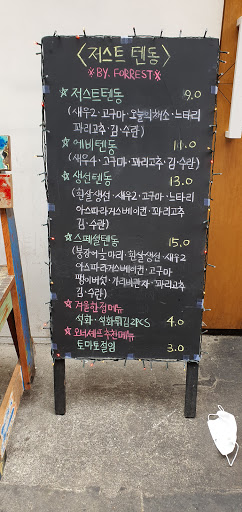 <저스트 텐동>
※BY. FORREST※
☆ 저스트텐동 9.0
(새우2·고구마·오늘의채소·느타리
꽈리고추·김·수란)
☆ 에비텐동 11.0
(새우4·고구마·꽈리고추·김·수란)
☆ 생선텐동 13.0
(흰살생선·새우2·고구마·느타리
아스파라거스베이컨·꽈리고추
김·수란)
☆ 스페셜텐동 15.0
(붕장어 마리·흰살생선·새우2
아스파라거스베이컨·고구마
팽이버섯·가리비관자·꽈리고추
김·수란)
☆ 겨울한정메뉴
석화·석화튀김2PCS 4.0
☆ 오너셰프추천메뉴
토마토절임 3.0